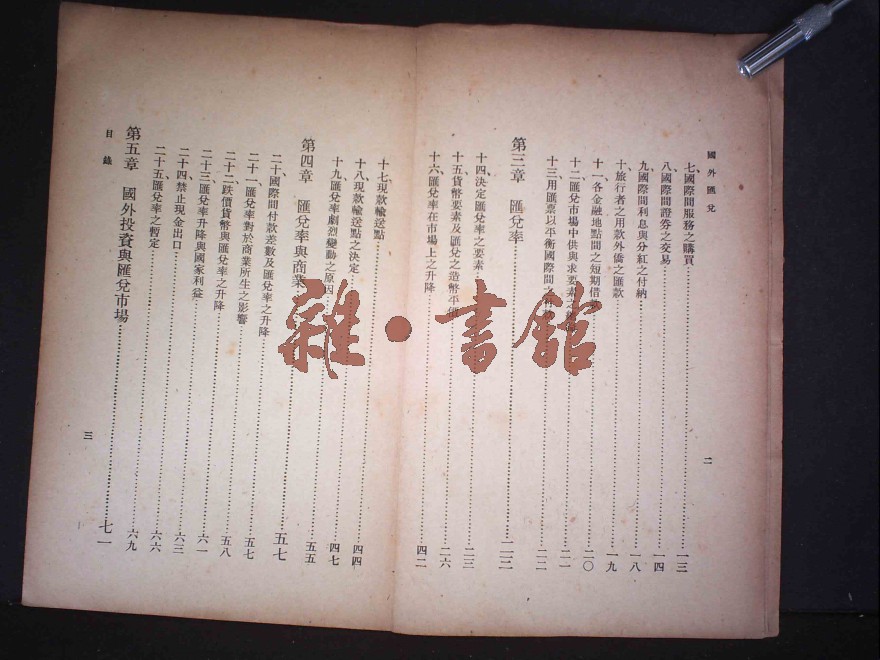 國外匯兌
七、國際間服務之購買……一三
八、國際間證券之交易……一四
九、國際間利息與分紅之付納……一八
十、旅行者之用款外僑之匯款……一九
十一、各金融地點間之短期借……二〇
十二、匯兌市場中供與求要素之……二一
十三、用匯票以平衡國際間之……二二
第三章 匯兌率……二三
十四、決定匯兌率之要素……二三
十五、貨幣要素及匯兌之造幣平價……二六
十六、匯兌率在市場上之升降……四二
二
十七、現款輸送點……四四
十八、現款輸送點之決定……四七
十九、匯兌率劇烈變動之原因……五五
第四章 匯兌率與商業……五七
二十、國際間付款差數及匯兌率之升降……五七
二十一、匯兌率對於商業所生之影響……五八
二十二、跌價貨幣與匯兌率之升降……六一
二十三、匯兌率升降與國家利益……六三
二十四、禁止現金出口……六六
二十五、匯兌率之暫定……六九
第五章 國外投資與匯兌市場……七一
目錄
三
雜·書館